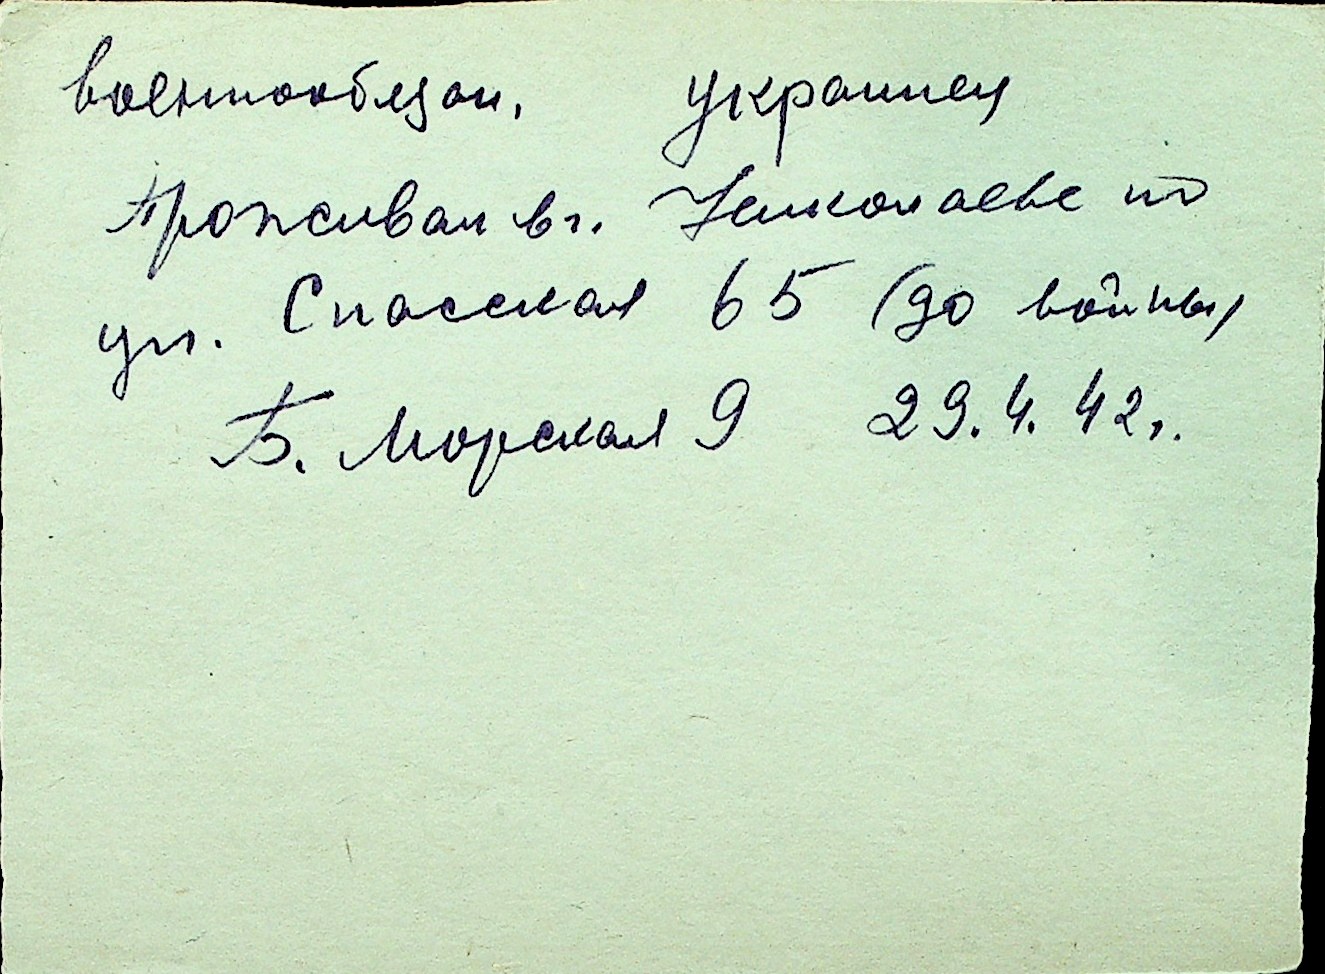 военнообязан, украинец
Проживал в г. Николаеве по
ул. Спасская 65 (до войны
Б. Морская 9 29.4.42г.